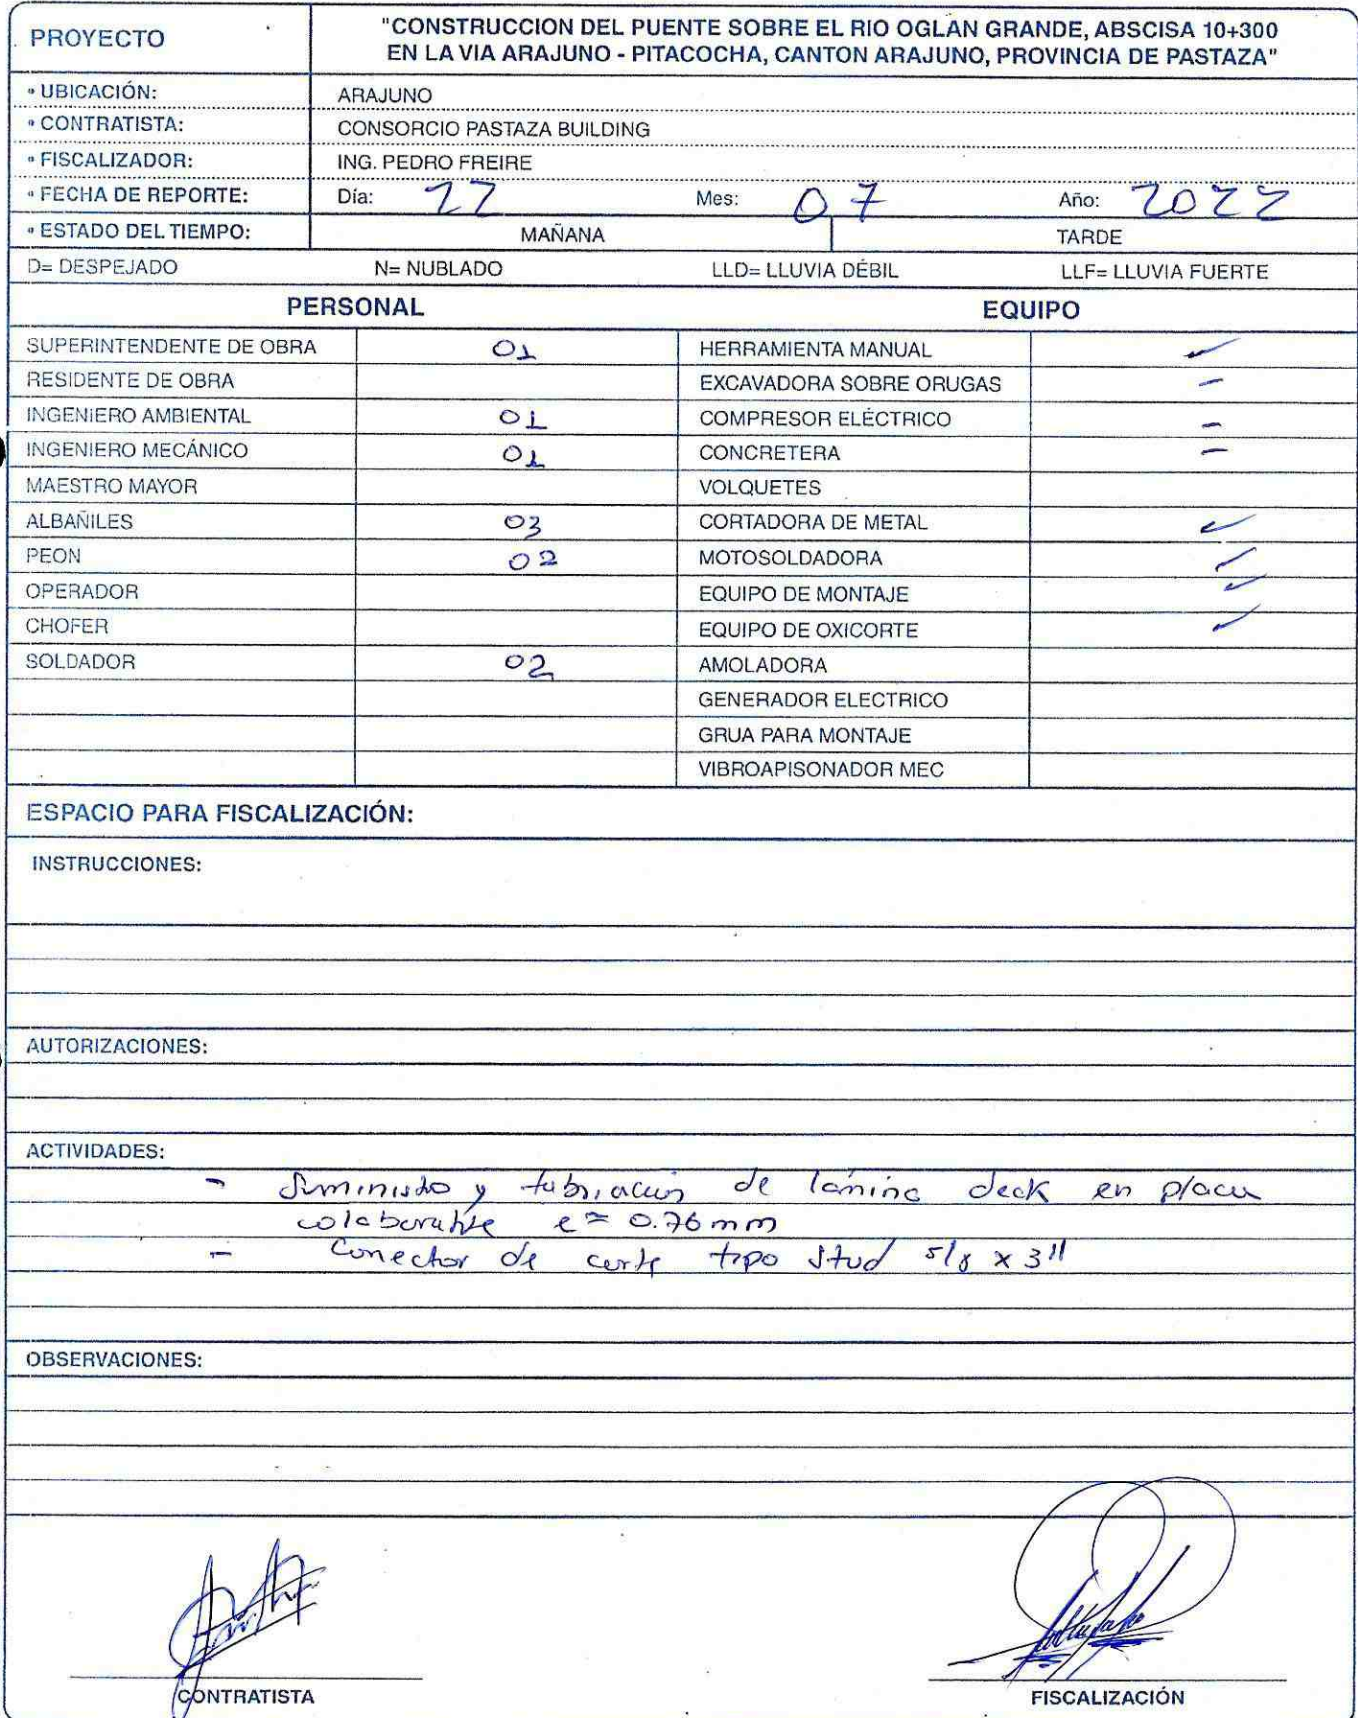 PROYECTO
"CONSTRUCCION DEL PUENTE SOBRE EL RIO OGLAN GRANDE, ABSCISA 10+300
EN LA VIA ARAJUNO - PITACOCHA, CANTON ARAJUNO, PROVINCIA DE PASTAZA"
• UBICACIÓN: ARAJUNO
• CONTRATISTA: CONSORCIO PASTAZA BUILDING
• FISCALIZADOR: ING. PEDRO FREIRE
• FECHA DE REPORTE: Día: 22 Mes: 07 Año: 2022
• ESTADO DEL TIEMPO: MAÑANA TARDE
D= DESPEJADO N= NUBLADO LLD= LLUVIA DÉBIL LLF= LLUVIA FUERTE
PERSONAL EQUIPO
SUPERINTENDENTE DE OBRA 01 HERRAMIENTA MANUAL ✓
RESIDENTE DE OBRA EXCAVADORA SOBRE ORUGAS -
INGENIERO AMBIENTAL 01 COMPRESOR ELÉCTRICO -
INGENIERO MECÁNICO 01 CONCRETERA -
MAESTRO MAYOR VOLQUETES
ALBAÑILES 03 CORTADORA DE METAL ✓
PEON 02 MOTOSOLDADORA ✓
OPERADOR EQUIPO DE MONTAJE ✓
CHOFER EQUIPO DE OXICORTE ✓
SOLDADOR 02 AMOLADORA
GENERADOR ELECTRICO
GRUA PARA MONTAJE
VIBROAPISONADOR MEC
ESPACIO PARA FISCALIZACIÓN:
INSTRUCCIONES:
AUTORIZACIONES:
ACTIVIDADES:
- Suministro y fabricacion de lamina deck en placa
colaborante e = 0.76 mm
- Conector de corte tipo Stud 5/8 x 3"
OBSERVACIONES:
CONTRATISTA FISCALIZACIÓN